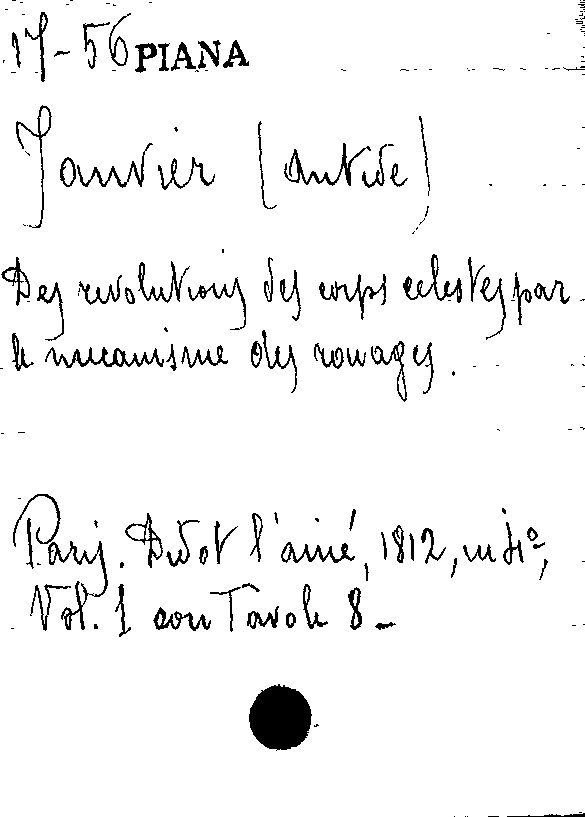 17-56 PIANA
Janvier (Antide)
Des revolutions des corps celestes par
le mecanisme des rouages.
Paris. Didot l'ainé, 1812, in 4º,
Vol. 1 con Tavole 8_